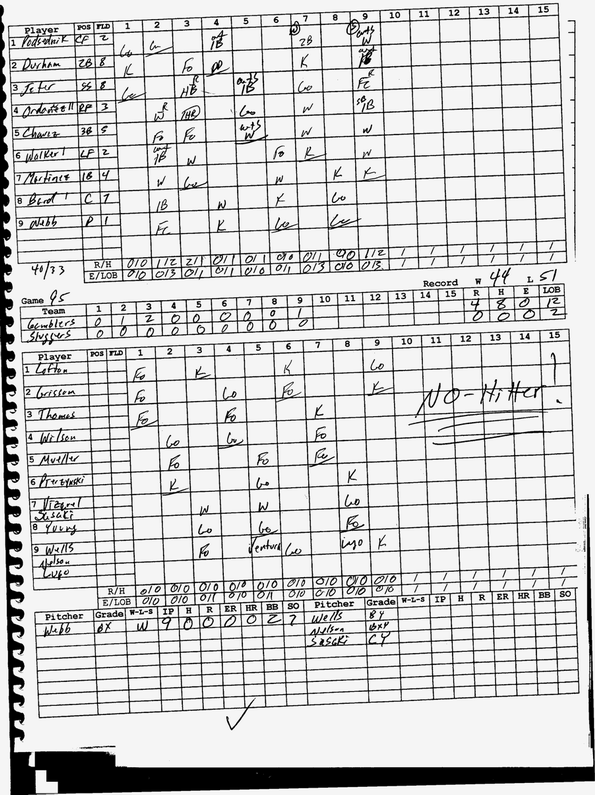 Player POS FLD 1 2 3 4 5 6 7 8 9 10 11 12 13 14 15
1 Podsednik CF 2 Go Go 1B 2B W
2 Durham 2B 8 K Fo DP K 1B
3 Jeter SS 8 Go HB R 1B Go FC R
4 Ordonez RF 3 W R 1HB Go W 1B
5 Chavez 3B 5 Fo Fo W W W
6 Walker LF 2 1B W Fo K W
7 Martinez 1B 4 W Go W K K
8 Bard C 7 1B W K Go
9 Webb P 1 Fc K Go Go
R/H 0/0 1/2 2/1 0/1 0/1 0/0 0/1 0/0 1/2 / / / / / /
40/33 E/LOB 0/0 0/3 0/1 0/1 0/0 0/1 0/3 0/0 0/3 / / / / / /
Record W 44 L 51
Game 95
Team 1 2 3 4 5 6 7 8 9 10 11 12 13 14 15 R H E LOB
Gamblers 0 1 2 0 0 0 0 0 1 4 8 0 12
Sluggers 0 0 0 0 0 0 0 0 0 0 0 0 2
Player POS FLD 1 2 3 4 5 6 7 8 9 10 11 12 13 14 15
1 Lofton Fo K K Go
2 Grissom Fo Go Fo K
3 Thomas Fo Fo K
NO-Hitter!
4 Wilson Go Go Fo
5 Mueller Fo Fo Fo
6 Pierzynski K Go K
7 Vizquel W W Go
Sasaki
8 Young Go Go Fo
9 Wells Fo Ventura Go Lugo K
Nelson
Lugo
R/H 0/0 0/0 0/0 0/0 0/0 0/0 0/0 0/0 0/0 / / / / / /
E/LOB 0/0 0/0 0/1 0/0 0/1 0/0 0/0 0/0 0/0 / / / / / /
Pitcher Grade W-L-S IP H R ER HR BB SO Pitcher Grade W-L-S IP H R ER HR BB SO
Webb BX W 9 0 0 0 0 2 7 Wells BY
Nelson BXY
Sasaki CY